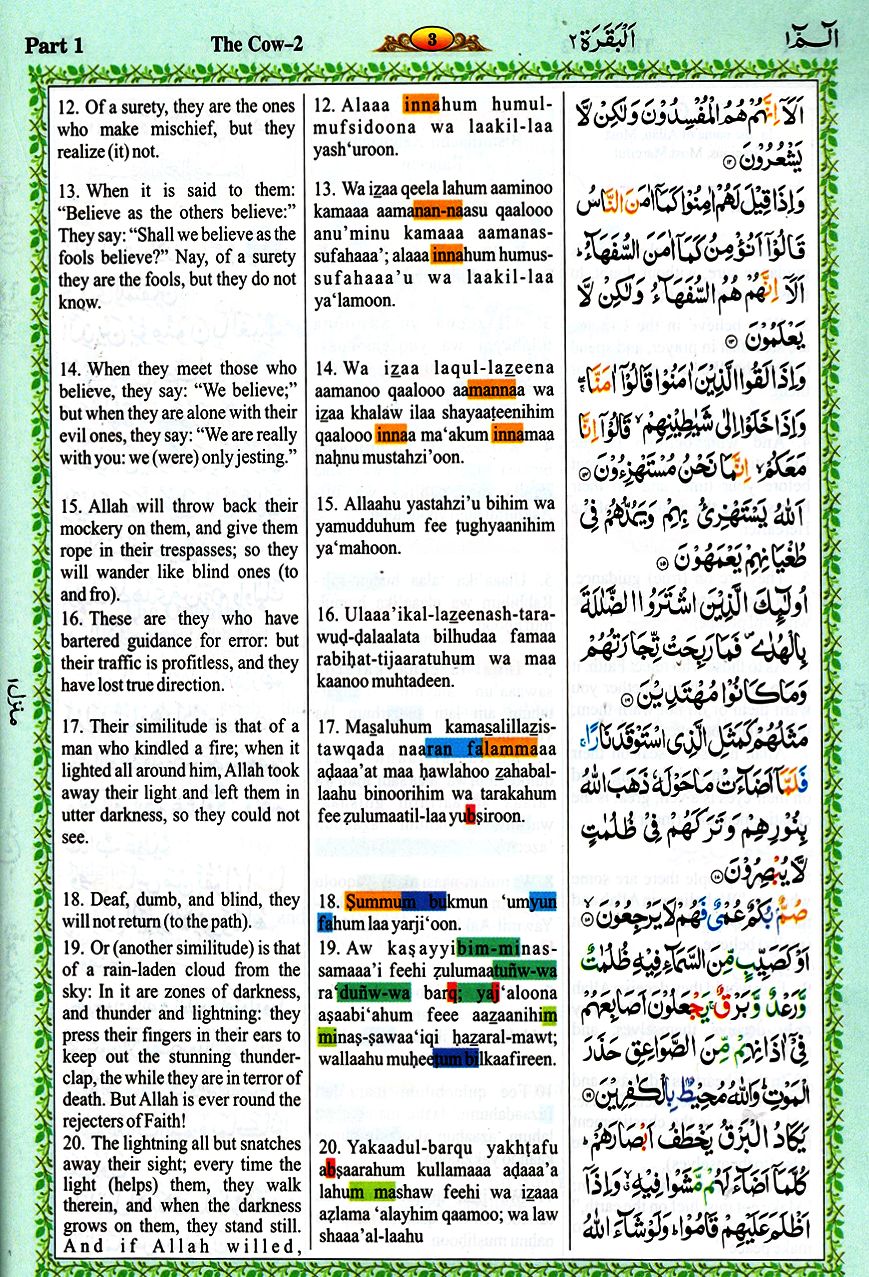 Part 1
The Cow–2
3
اَلْبَقَرَة ٢
الٓـمّٓ ١
12. Of a surety, they are the ones
who make mischief, but they
realize (it) not.
13. When it is said to them:
“Believe as the others believe:”
They say: “Shall we believe as the
fools believe?” Nay, of a surety
they are the fools, but they do not
know.
14. When they meet those who
believe, they say: “We believe;”
but when they are alone with their
evil ones, they say: “We are really
with you: we (were) only jesting.”
15. Allah will throw back their
mockery on them, and give them
rope in their trespasses; so they
will wander like blind ones (to
and fro).
16. These are they who have
bartered guidance for error: but
their traffic is profitless, and they
have lost true direction.
17. Their similitude is that of a
man who kindled a fire; when it
lighted all around him, Allah took
away their light and left them in
utter darkness, so they could not
see.
18. Deaf, dumb, and blind, they
will not return (to the path).
19. Or (another similitude) is that
of a rain-laden cloud from the
sky: In it are zones of darkness,
and thunder and lightning: they
press their fingers in their ears to
keep out the stunning thunder-
clap, the while they are in terror of
death. But Allah is ever round the
rejecters of Faith!
20. The lightning all but snatches
away their sight; every time the
light (helps) them, they walk
therein, and when the darkness
grows on them, they stand still.
And if Allah willed,
12. Alaaa innahum humul-
mufsidoona wa laakil-laa
yash‘uroon.
13. Wa iz̲aa qeela lahum aaminoo
kamaaa aamanan-naasu qaalooo
anu’minu kamaaa aamanas-
sufahaaa’; alaaa innahum humus-
sufahaaa’u wa laakil-laa
ya‘lamoon.
14. Wa iz̲aa laqul-laz̲eena
aamanoo qaalooo aamannaa wa
iz̲aa khalaw ilaa shayaaṭeenihim
qaalooo innaa ma‘akum innamaa
naḥnu mustahzi’oon.
15. Allaahu yastahzi’u bihim wa
yamudduhum fee ṭughyaanihim
ya‘mahoon.
16. Ulaaa’ikal-laz̲eenash-tara-
wuḍ-ḍalaalata bilhudaa famaa
rabiḥat-tijaaratuhum wa maa
kaanoo muhtadeen.
17. Mas̲aluhum kamas̲alillaz̲is-
tawqada naaran falammaaa
aḍaaa’at maa ḥawlahoo z̲ahabal-
laahu binoorihim wa tarakahum
fee ẓulumaatil-laa yubṣiroon.
18. Ṣummum bukmun ‘umyun
fahum laa yarji‘oon.
19. Aw kaṣayyibim-minas-
samaaa’i feehi ẓulumaatuñw-wa
ra‘duñw-wa barq; yaj‘aloona
aṣaabi‘ahum feee aaz̲aanihim
minaṣ-ṣawaa‘iqi ḥaz̲aral-mawt;
wallaahu muḥeeṭum bilkaafireen.
20. Yakaadul-barqu yakhṭafu
abṣaarahum kullamaaa aḍaaa’a
lahum mashaw feehi wa iz̲aaa
aẓlama ‘alayhim qaamoo; wa law
shaaa’al-laahu
اَلَآ اِنَّهُمْ هُمُ الْمُفْسِدُوْنَ وَلٰكِنْ لَّا
يَشْعُرُوْنَ ۝١٢
وَاِذَا قِيْلَ لَهُمْ اٰمِنُوْا كَمَآ اٰمَنَ النَّاسُ
قَالُوْٓا اَنُؤْمِنُ كَمَآ اٰمَنَ السُّفَهَآءُ ؕ
اَلَآ اِنَّهُمْ هُمُ السُّفَهَآءُ وَلٰكِنْ لَّا
يَعْلَمُوْنَ ۝١٣
وَاِذَا لَقُوا الَّذِيْنَ اٰمَنُوْا قَالُوْٓا اٰمَنَّا ۚ
وَاِذَا خَلَوْا اِلٰى شَيٰطِيْنِهِمْ ۙ قَالُوْٓا اِنَّا
مَعَكُمْ ۙ اِنَّمَا نَحْنُ مُسْتَهْزِءُوْنَ ۝١٤
اَللّٰهُ يَسْتَهْزِئُ بِهِمْ وَيَمُدُّهُمْ فِيْ
طُغْيَانِهِمْ يَعْمَهُوْنَ ۝١٥
اُولٰٓئِكَ الَّذِيْنَ اشْتَرَوُا الضَّلٰلَةَ
بِالْهُدٰى ۪ فَمَا رَبِحَتْ تِّجَارَتُهُمْ
وَمَا كَانُوْا مُهْتَدِيْنَ ۝١٦
مَثَلُهُمْ كَمَثَلِ الَّذِى اسْتَوْقَدَ نَارًا ۚ
فَلَمَّآ اَضَآءَتْ مَا حَوْلَهٗ ذَهَبَ اللّٰهُ
بِنُوْرِهِمْ وَتَرَكَهُمْ فِيْ ظُلُمٰتٍ
لَّا يُبْصِرُوْنَ ۝١٧
صُمٌّۢ بُكْمٌ عُمْيٌ فَهُمْ لَا يَرْجِعُوْنَ ۝١٨
اَوْ كَصَيِّبٍ مِّنَ السَّمَآءِ فِيْهِ ظُلُمٰتٌ
وَّرَعْدٌ وَّبَرْقٌ ۚ يَجْعَلُوْنَ اَصَابِعَهُمْ
فِيْٓ اٰذَانِهِمْ مِّنَ الصَّوَاعِقِ حَذَرَ
الْمَوْتِ ؕ وَاللّٰهُ مُحِيْطٌۢ بِالْكٰفِرِيْنَ ۝١٩
يَكَادُ الْبَرْقُ يَخْطَفُ اَبْصَارَهُمْ ؕ
كُلَّمَآ اَضَآءَ لَهُمْ مَّشَوْا فِيْهِ ۙ وَاِذَآ
اَظْلَمَ عَلَيْهِمْ قَامُوْا ؕ وَلَوْ شَآءَ اللّٰهُ
منزل ١